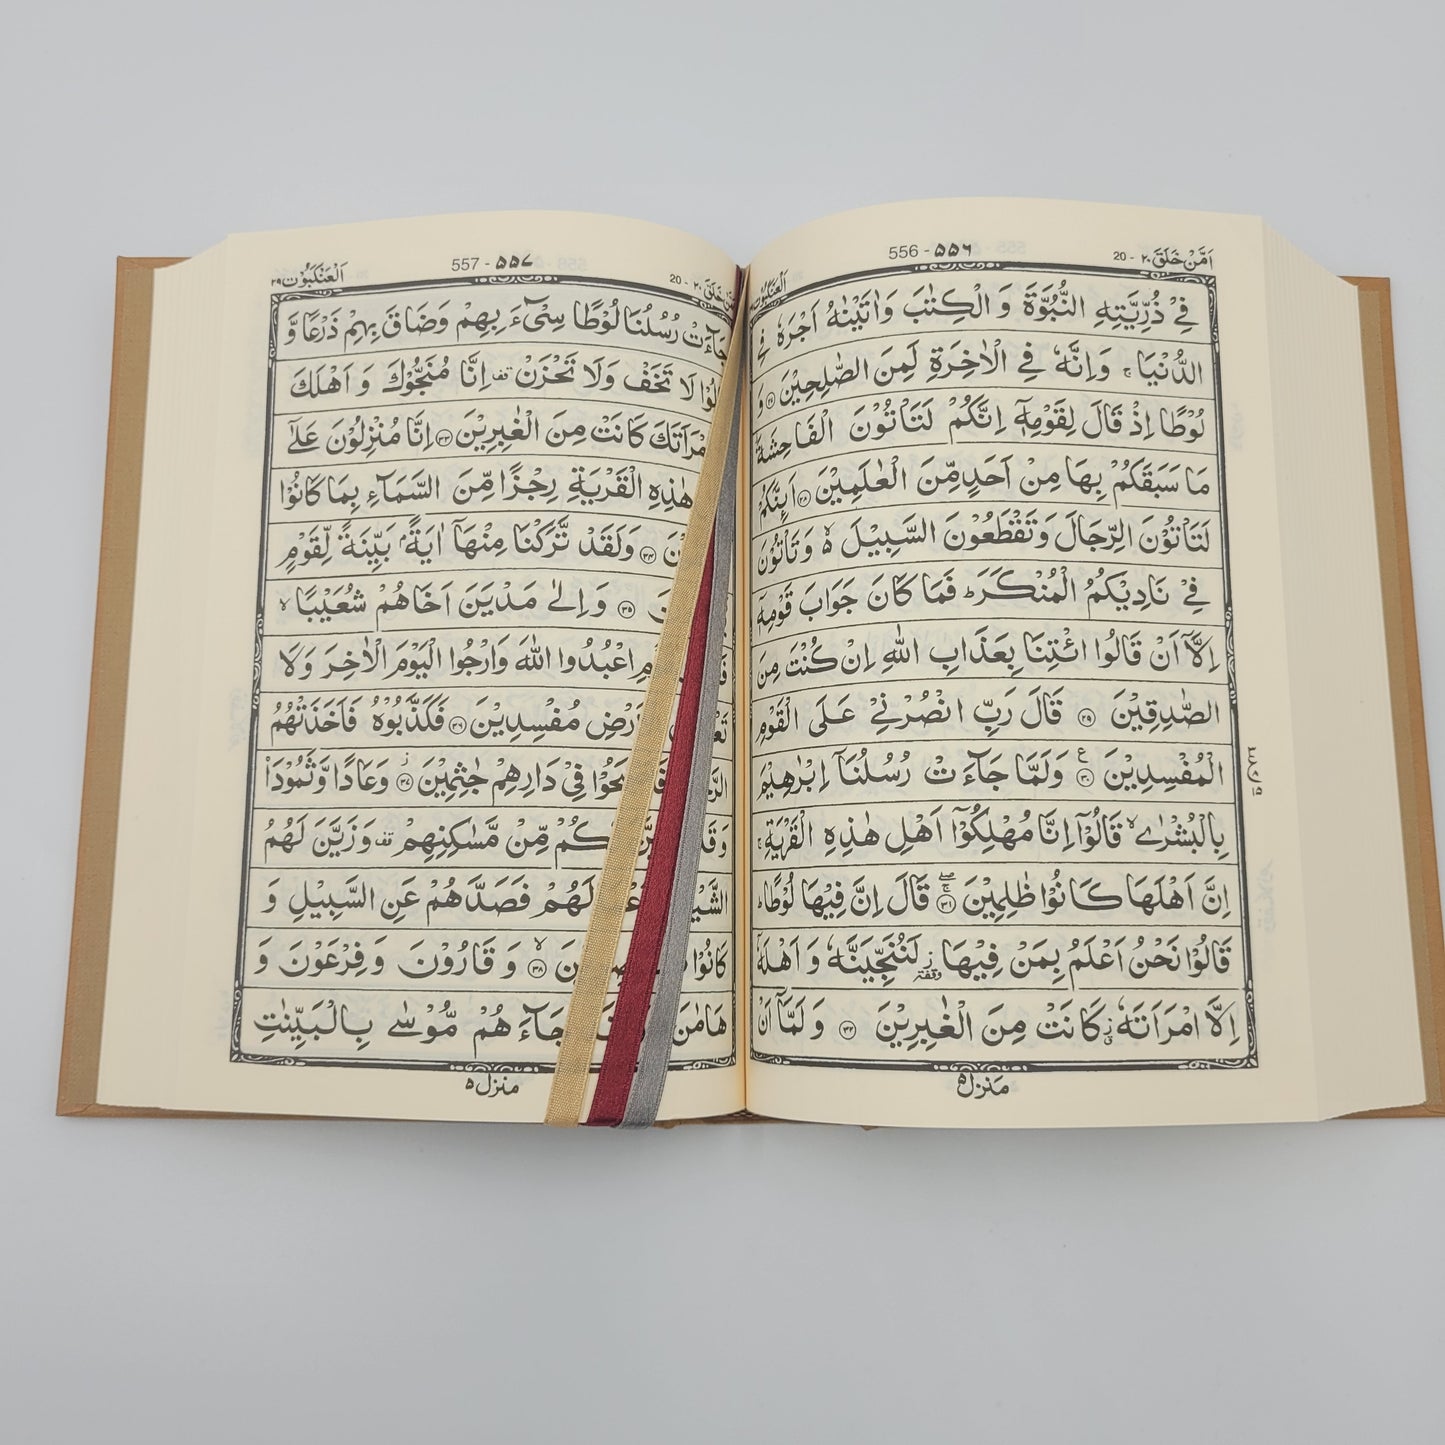 اَمَّنْ خَلَقَ ٢٠ - 20
556 - ۵۵۶
اَلْعَنْكَبُوْت
فِيْ ذُرِّيَّتِهِ النُّبُوَّةَ وَ الْكِتٰبَ وَاٰتَيْنٰهُ اَجْرَهٗ فِي
الدُّنْيَا ۚ وَاِنَّهٗ فِي الْاٰخِرَةِ لَمِنَ الصّٰلِحِيْنَ ۝٢٧ وَ
لُوْطًا اِذْ قَالَ لِقَوْمِهٖٓ اِنَّكُمْ لَتَاْتُوْنَ الْفَاحِشَةَ
مَا سَبَقَكُمْ بِهَا مِنْ اَحَدٍ مِّنَ الْعٰلَمِيْنَ ۝٢٨ اَئِنَّكُمْ
لَتَاْتُوْنَ الرِّجَالَ وَتَقْطَعُوْنَ السَّبِيْلَ ۵ وَتَاْتُوْنَ
فِيْ نَادِيْكُمُ الْمُنْكَرَ ؕ فَمَا كَانَ جَوَابَ قَوْمِهٖٓ
اِلَّآ اَنْ قَالُوا ائْتِنَا بِعَذَابِ اللّٰهِ اِنْ كُنْتَ مِنَ
الصّٰدِقِيْنَ ۝٢٩ قَالَ رَبِّ انْصُرْنِيْ عَلَى الْقَوْمِ
الْمُفْسِدِيْنَ ۝٣٠ ع وَلَمَّا جَآءَتْ رُسُلُنَآ اِبْرٰهِيْمَ
بِالْبُشْرٰى ۙ قَالُوْٓا اِنَّا مُهْلِكُوْٓا اَهْلِ هٰذِهِ الْقَرْيَةِ ۚ
اِنَّ اَهْلَهَا كَانُوْا ظٰلِمِيْنَ ۝٣١ قَالَ اِنَّ فِيْهَا لُوْطًا ؕ
قَالُوْا نَحْنُ اَعْلَمُ بِمَنْ فِيْهَا ز وقفة لَنُنَجِّيَنَّهٗ وَ اَهْلَهٗٓ
اِلَّا امْرَاَتَهٗ كَانَتْ مِنَ الْغٰبِرِيْنَ ۝٣٢ وَ لَمَّآ اَنْ
مَنزل ۵
خَلَقَ ٢٠ - 20
557 - ۵۵۷
اَلْعَنْكَبُوْت ٢٩
جَآءَتْ رُسُلُنَا لُوْطًا سِيْٓءَ بِهِمْ وَضَاقَ بِهِمْ ذَرْعًا وَّ
لَا تَخَفْ وَلَا تَحْزَنْ قف اِنَّا مُنَجُّوْكَ وَ اَهْلَكَ
كَانَتْ مِنَ الْغٰبِرِيْنَ ۝٣٣ اِنَّا مُنْزِلُوْنَ عَلٰٓى
هٰذِهِ الْقَرْيَةِ رِجْزًا مِّنَ السَّمَآءِ بِمَا كَانُوْا
۝٣٤ وَلَقَدْ تَّرَكْنَا مِنْهَآ اٰيَةًۢ بَيِّنَةً لِّقَوْمٍ
۝٣٥ وَ اِلٰى مَدْيَنَ اَخَاهُمْ شُعَيْبًا ۙ
اعْبُدُوا اللّٰهَ وَارْجُوا الْيَوْمَ الْاٰخِرَ وَلَا
مُفْسِدِيْنَ ۝٣٦ فَكَذَّبُوْهُ فَاَخَذَتْهُمُ
فِيْ دَارِهِمْ جٰثِمِيْنَ ۝٣٧ ز وَعَادًا وَّثَمُوْدَا۟
مِّنْ مَّسٰكِنِهِمْ قف وَزَيَّنَ لَهُمُ
لَهُمْ فَصَدَّهُمْ عَنِ السَّبِيْلِ وَ
كَانُوْا ۝٣٨ ۙ وَ قَارُوْنَ وَ فِرْعَوْنَ وَ
هَامٰنَ جَآءَهُمْ مُّوْسٰى بِالْبَيِّنٰتِ
منزل ۵